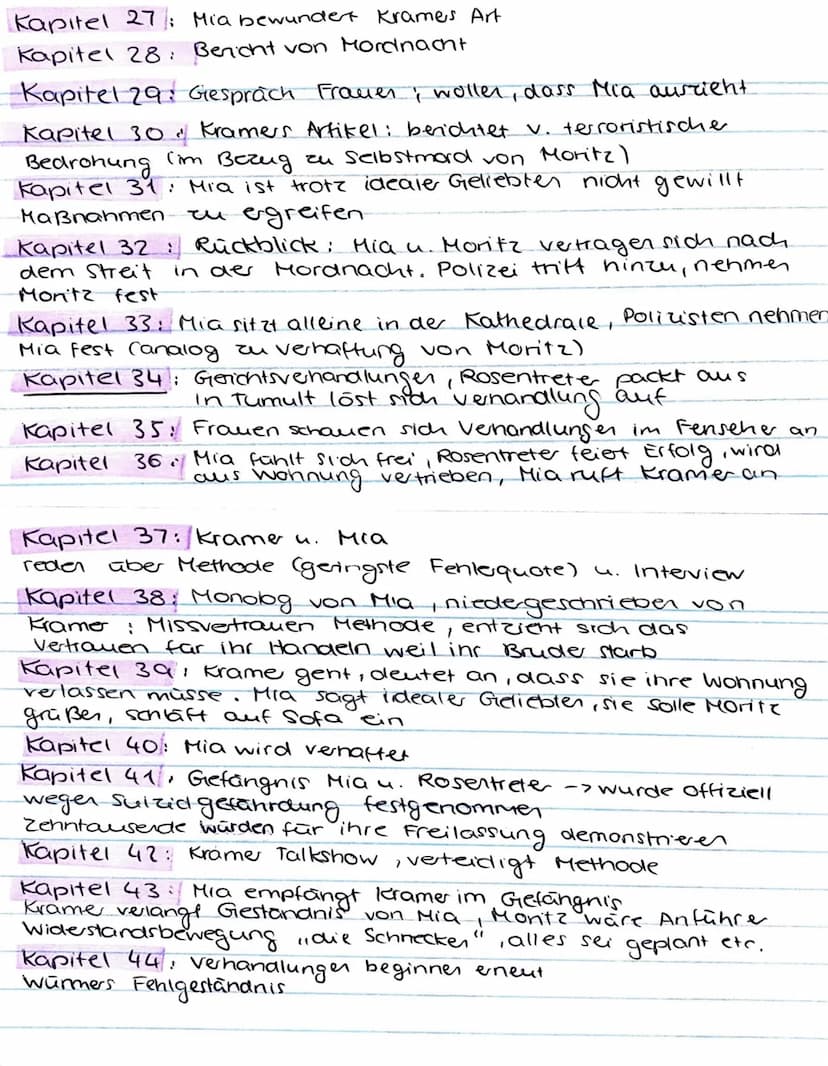 Kapitel 27: Mia bewundert Kramers Art
Kapitel 28: Bericht von Mordnacht
Kapitel 29: Gespräch Frauen; wollen, dass Mia auszieht
Kapitel 30: Kramers Artikel: berichtet v. terroristische
Bedrohung (im Bezug zu Selbstmord von Moritz)
Kapitel 31: Mia ist trotz idealer Geliebten nicht gewillt
Maßnahmen zu ergreifen
Kapitel 32: Rückblick: Mia u. Moritz vertragen sich nach
dem Streit in der Mordnacht. Polizei tritt hinzu, nehmen
Moritz fest
Kapitel 33: Mia sitzt alleine in der Kathedrale, Polizisten nehmen
Mia fest (analog zu verhaftung von Moritz)
Kapitel 34: Gerichtsverhandlungen, Rosentreter packt aus
in Tumult löst sich verhandlung auf
Kapitel 35: Frauen schauen sich Verhandlungen im Fernseher an
Kapitel 36: Mia fühlt sich frei, Rosentreter feiert Erfolg, wird
aus Wohnung vertrieben, Mia ruft Kramer an
Kapitel 37: Kramer u. Mia
reden über Methode (geringste Fehlerquote) u. Interview
Kapitel 38: Monolog von Mia, niedergeschrieben von
Kramer: Missvertrauen Methode, entzieht sich das
Vertrauen für ihr Handeln weil ihr Bruder starb
Kapitel 39: Kramer geht, deutet an, dass sie ihre Wohnung
verlassen müsse. Mia sagt idealer Geliebten, sie solle Moritz
grüßen, schläft auf Sofa ein
Kapitel 40: Mia wird verhaftet
Kapitel 41: Gefängnis Mia u. Rosentreter -> wurde offiziell
wegen Suizidgefährdung festgenommen
Zehntausende würden für ihre Freilassung demonstrieren
Kapitel 42: Kramer Talkshow, verteidigt Methode
Kapitel 43: Mia empfängt Kramer im Gefängnis
Kramer verlangt Geständnis von Mia, Moritz wäre Anführer
Widerstandsbewegung „die Schnecken“, alles sei geplant etc.
Kapitel 44: Verhandlungen beginnen erneut
Würmers Fehlgeständnis